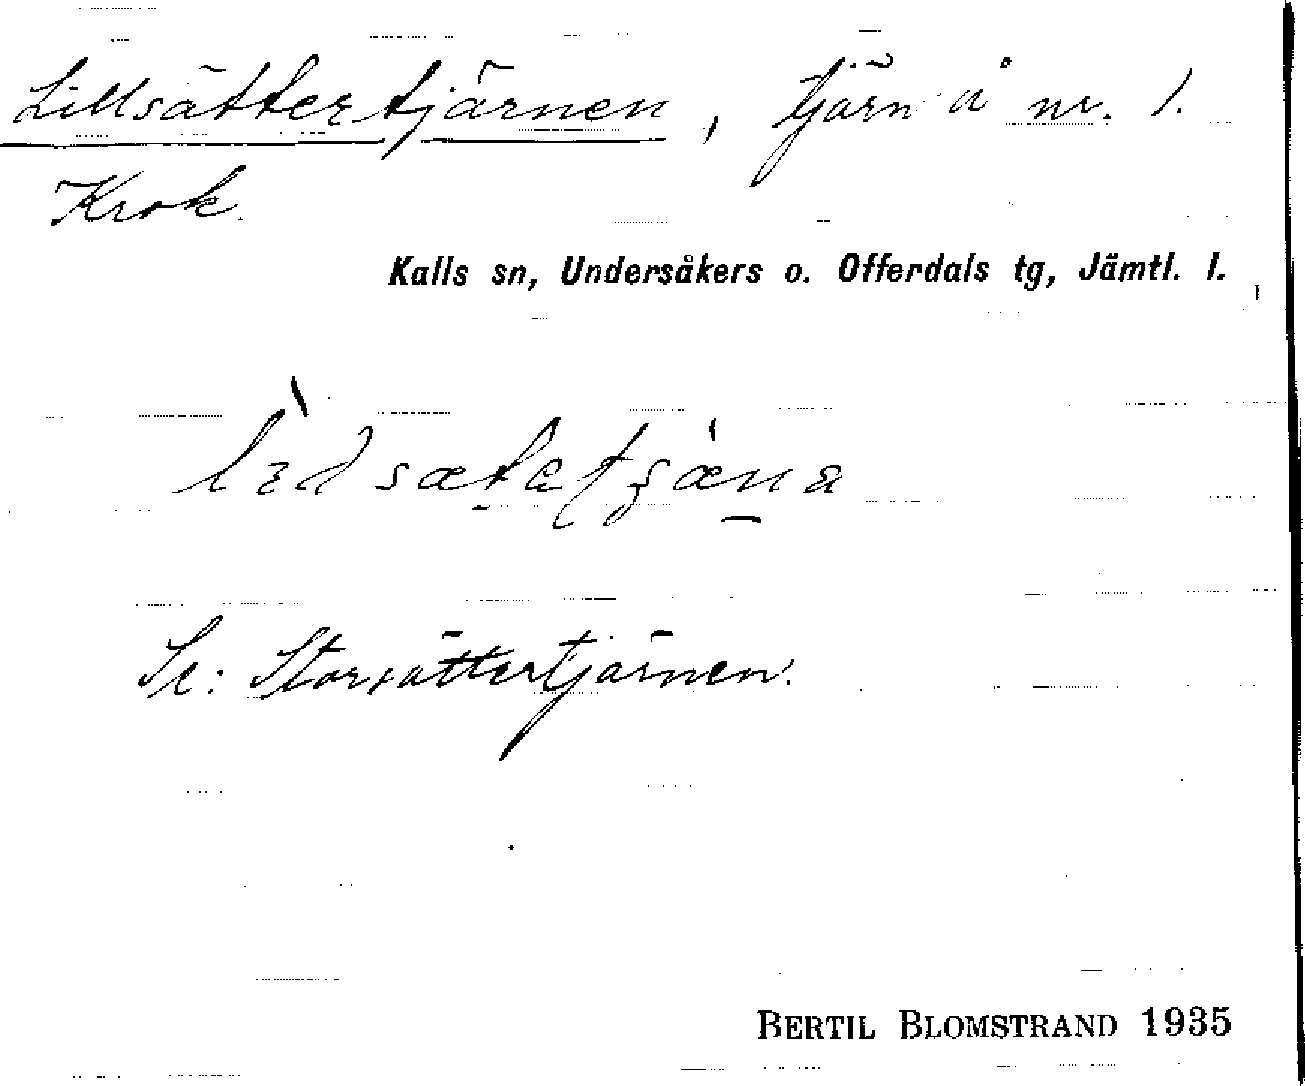 Lillsättertjärnen, tjärn å nr. 1.
Krok.
Kalls sn, Undersåkers o. Offerdals tg, Jämtl. l.
Se: Storsättertjärnen.
BERTIL BLOMSTRAND 1935